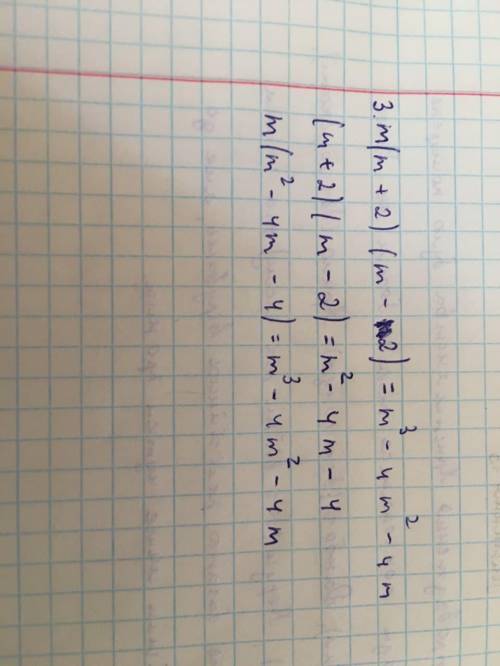 3. m(m + 2) (m - 2) = m³ - 4m² - 4m
(m + 2) (m - 2) = m² - 4m - 4
m(m² - 4m - 4) = m³ - 4m² - 4m